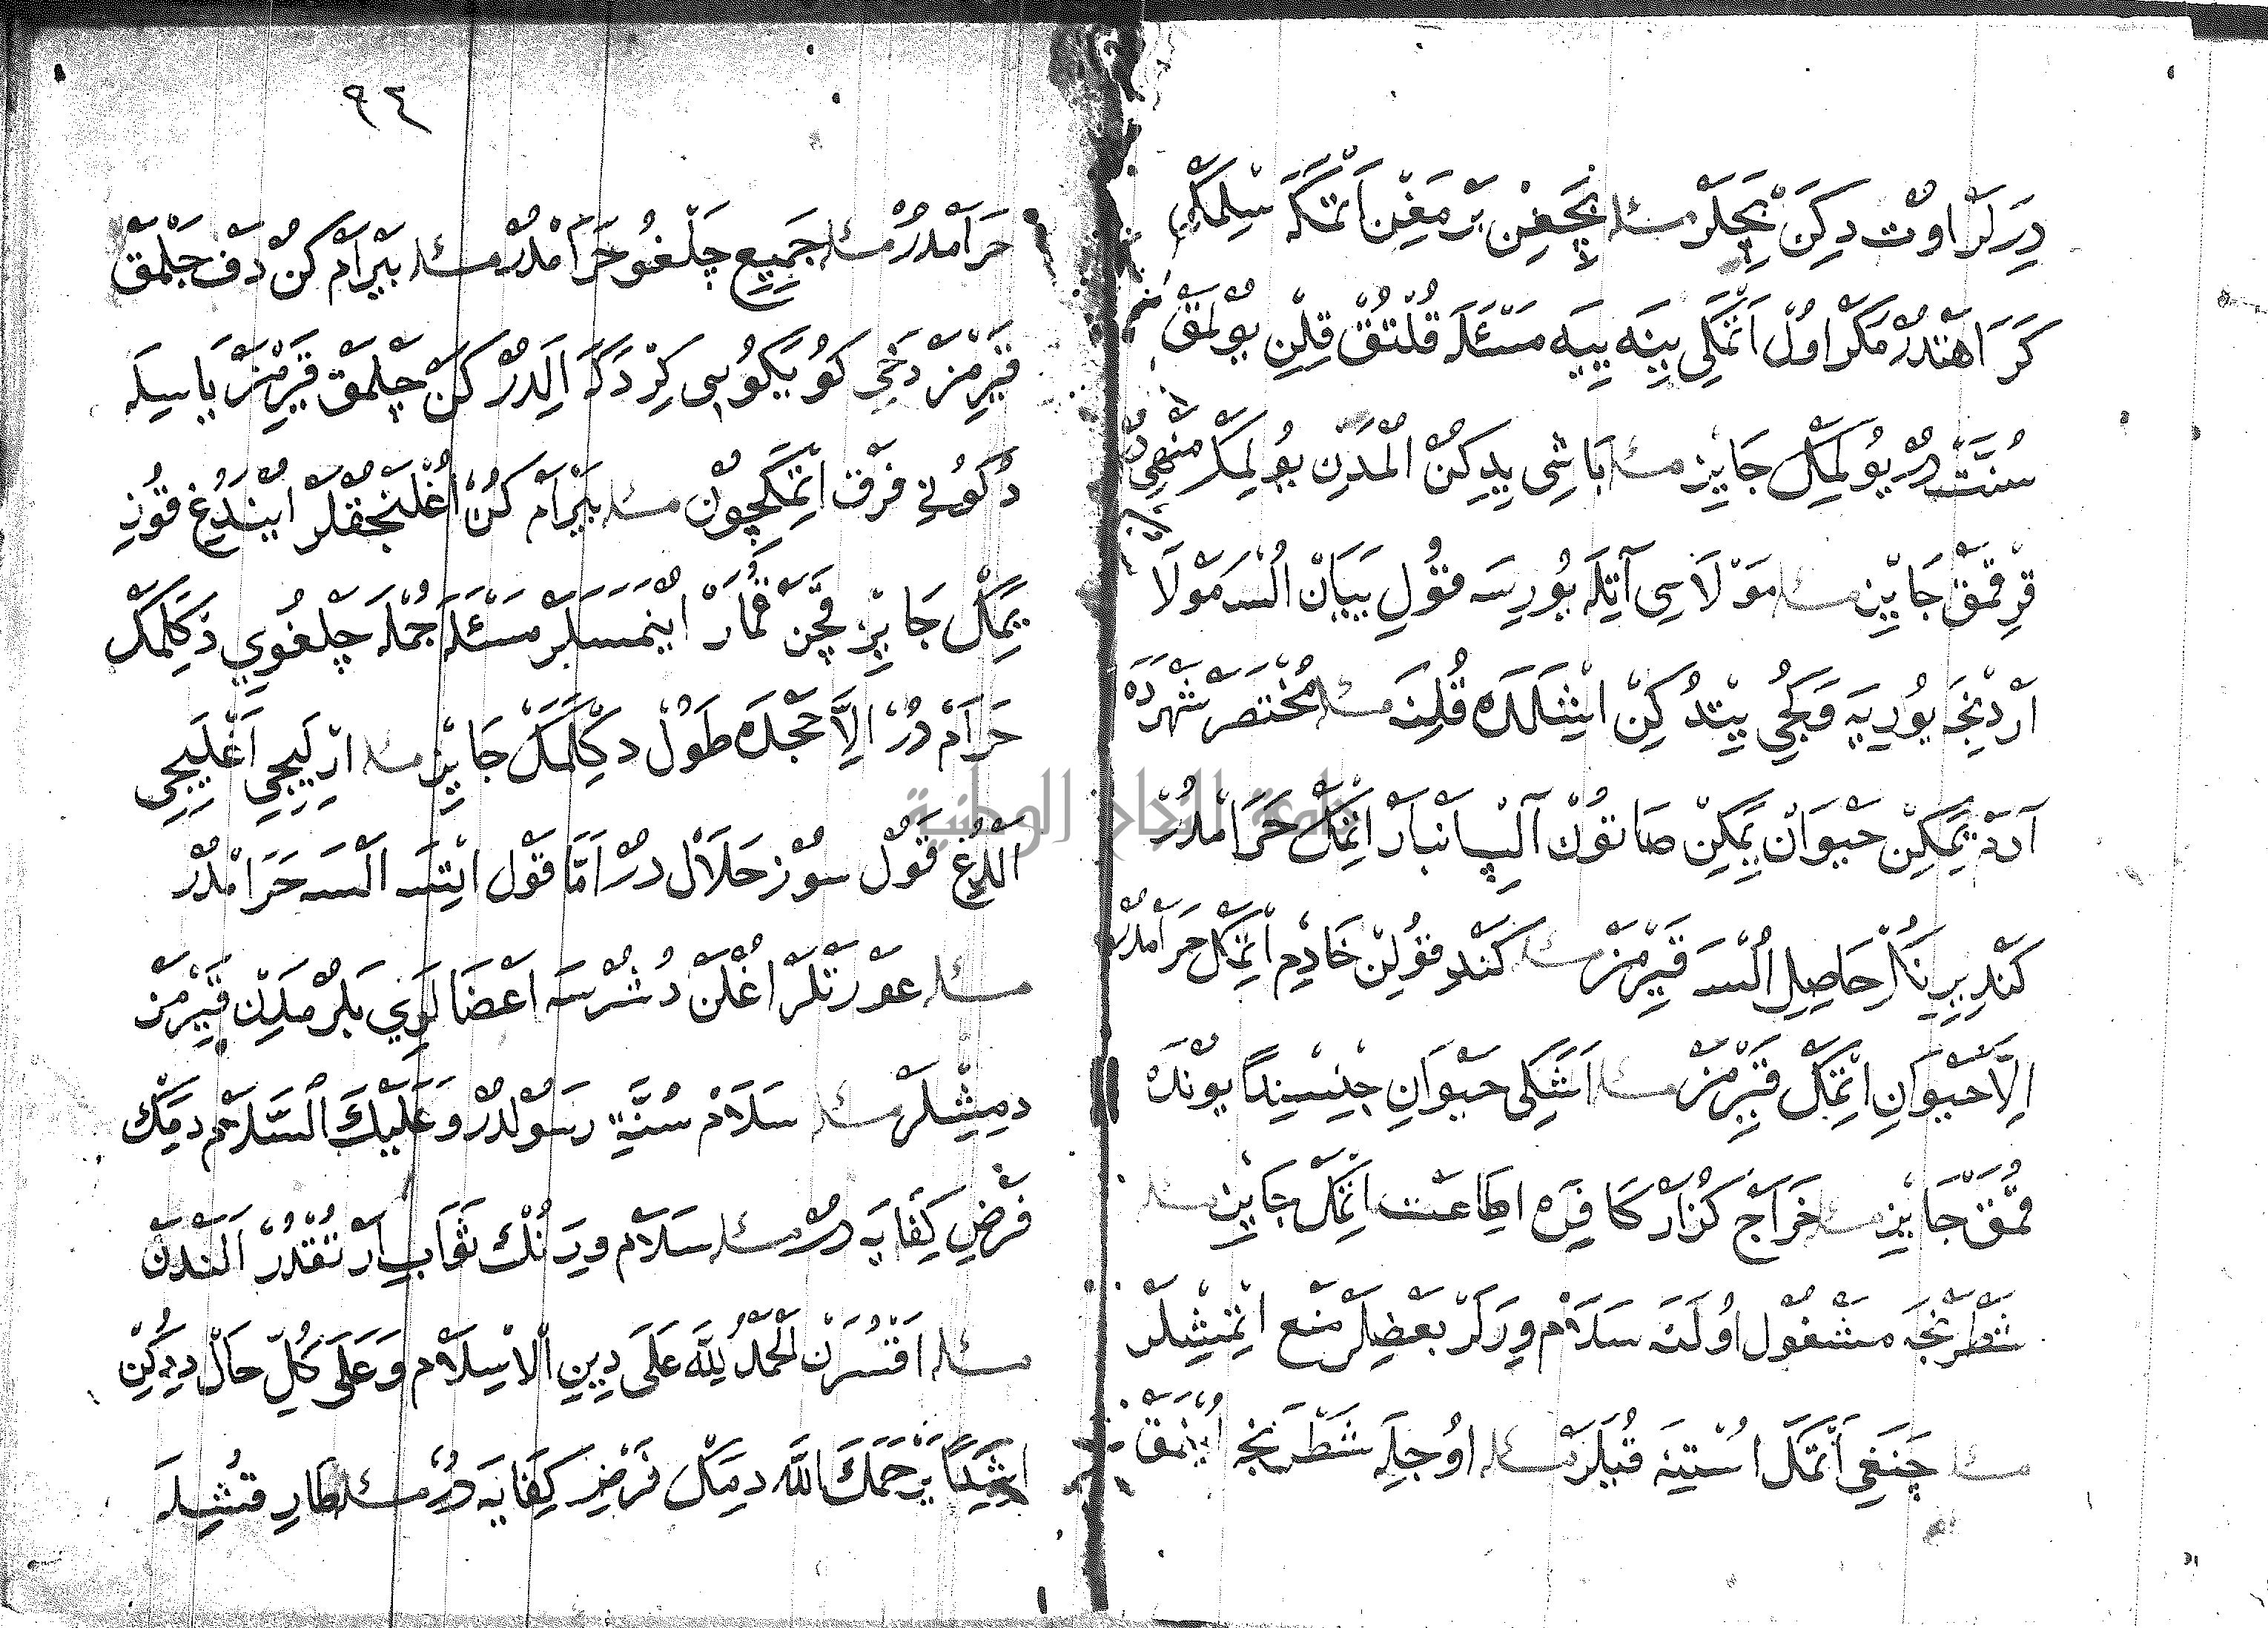 دِرَلَرْ اوُتْ دِكِنْ بِچَلَرْ مسئله بِچَغِنْ بَرْمَغِنْ اَتْمَكَه سِلِمَكْ
كَرَاهَتْدُرْ مَكَرْ اوُلْ اَتْمَكِي يِنَه يِيَه مَسْئَلَه قُلْتُقْ قِلِنْ يُوْلْمَقْ
سُنَّتْ دُرْ يُولِمَكْ جَايِزْ مسئله بَاشِي يِدِكُنْ اُلْمَدَنْ يُولِمَكْ مَنْهِي دُرْ
قِرِقْمَقْ جَايِزْ مسئله مَوْلَاسِي آتِلَه يُورِسَه قُولِ يَيَانْ اُلْسَه مَوْلَا
آرْدِنْجَه يُورِيَه وَكِجِي يِتْدُكِنْ اِيشَلَدَه قُلِنَه مسئله مُخْتَصَرْ شَهْرَدَه
آدَمْ يِمَكِنْ حَيْوَانْ يِمَكِنْ صَاتُونْ آلِپْ اَنْبَارْ اِتْمَكْ حَرَامْدُرْ
كَنْدِ يِرِينَكْ حَاصِلِ اُلْسَه قَيِرْمَزْ مسئله كَنْدُ قُولِنْ خَادِمْ اِتْمَكْ حَرَامْدُرْ
اِلَّا حَيْوَانِ اِتْمَكْ قَيِرْمَزْ مسئله اَشَكِي حَيْوَانِ جِنِسِنْدَا يُونْدَه
قُمَقْ جَايِزْ مسئله خَرَاجْ كُزَارْ كَافِرَه اِطَاعَتْ اِتْمَكْ جَايِزْ مسئله
شَطْرَنْجَه مَشْغُولْ اُولَنَه سَلَامْ وِرَلَرْ بَعْضِلَرْ مَنْع اِتْمِشِلَرْ
مسئله چَنَغِي اَتْمَكْ اُسْتِينَه قُيَلَرْ مسئله اوُجِلَه شَطْرَنْجْ اُيْنَمَقْ
٩٤
حَرَامْدُرْ مسئله جَمِيعِ چَلْغُو حَرَامْدُرْ مسئله بَيْرَامْ كُنْ دَفْ چَلْمَقْ
قَيِرْمَزْ دَخِي كُوَيْكُوسِي كِرْدَكَه اِلَدُرْكَنْ چَلْمَقْ قَيِرْمَزْ يَاسِلَه
دُكُونِي فَرْقْ اِتْمَكِچُونْ مسئله بَيْرَامْ كُنْ اُغْلَنْجَقْلَرْ اُيْنَدُغِ قُوزِ
يِمَكْ جَايِزْ قَچَنْ قُمَارْ اُيْنَمَسَلَرْ مَسْئَلَه جُمْلَه چَلْغُويِ دِكْلَمَكْ
حَرَامْ دُرْ اِلَّا حَجْدَه طَوُلْ دِكْلَمَكْ جَايِزْ مسئله اِرْلَيِيجِي اَغْلَيِيجِي
اَلْدُغِ قَوْلْ سُوزْ حَلَالْ دُرْ اَمَّا قَوْلْ اِيتَسَه اَلْسَه حَرَامْدُرْ
مسئله عَوْرَتْلَرْ اُغْلَنْ دُشُرْسَه اَعْضَالَرِي بَلُرْمَدِنْ قَيِرْمَزْ
دِمِشِلَرْ مسئله سَلَامْ سُنَّةِ رَسُولْدُرْ وَعَلَيْكَ السَّلَامُ دِمَكْ
فَرْضِ كِفَايَه دُرْ مسئله سَلَامْ وِرَنُكْ ثَوَابِ اَرْتُقْدُرْ اَلَنْدَنْ
مسئله اَقْسُرَنْ الْحَمْدُ لِلَّهِ عَلَى دِينِ الْاِسْلَامْ وَعَلَى كُلِّ حَالْ دِدِكِنْ
اِشِدَنْ يَرْحَمَكَ اللَّه دِمَكْ فَرْضِ كِفَايَه دُرْ مسئله طَارِ قُشِلَه
جامعة النجاح الوطنية